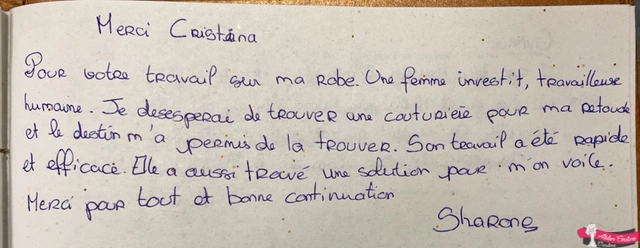 Merci Cristina
Pour votre travail sur ma robe. Une femme investit, travailleuse
humaine. Je desesperai de trouver une couturière pour ma retouche
et le destin m'a permis de la trouver. Son travail a été rapide
et efficace. Elle a aussi trouvé une solution pour mon voile.
Merci pour tout et bonne continuation
Sharone